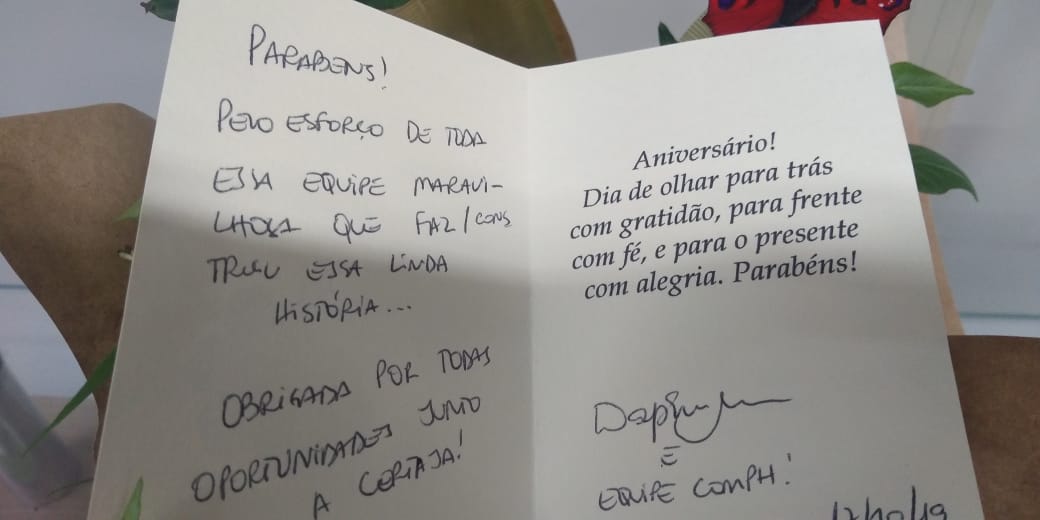 PARABENS!
PELO ESFORÇO DE TODA
ESSA EQUIPE MARAVI-
LHOSA QUE FAZ/CONS
TRUIU ESSA LINDA
HISTÓRIA...
OBRIGADA POR TODAS
OPORTUNIDADES JUNTO
A CERTAJA!
Aniversário!
Dia de olhar para trás
com gratidão, para frente
com fé, e para o presente
com alegria. Parabéns!
E
EQUIPE COMPH!